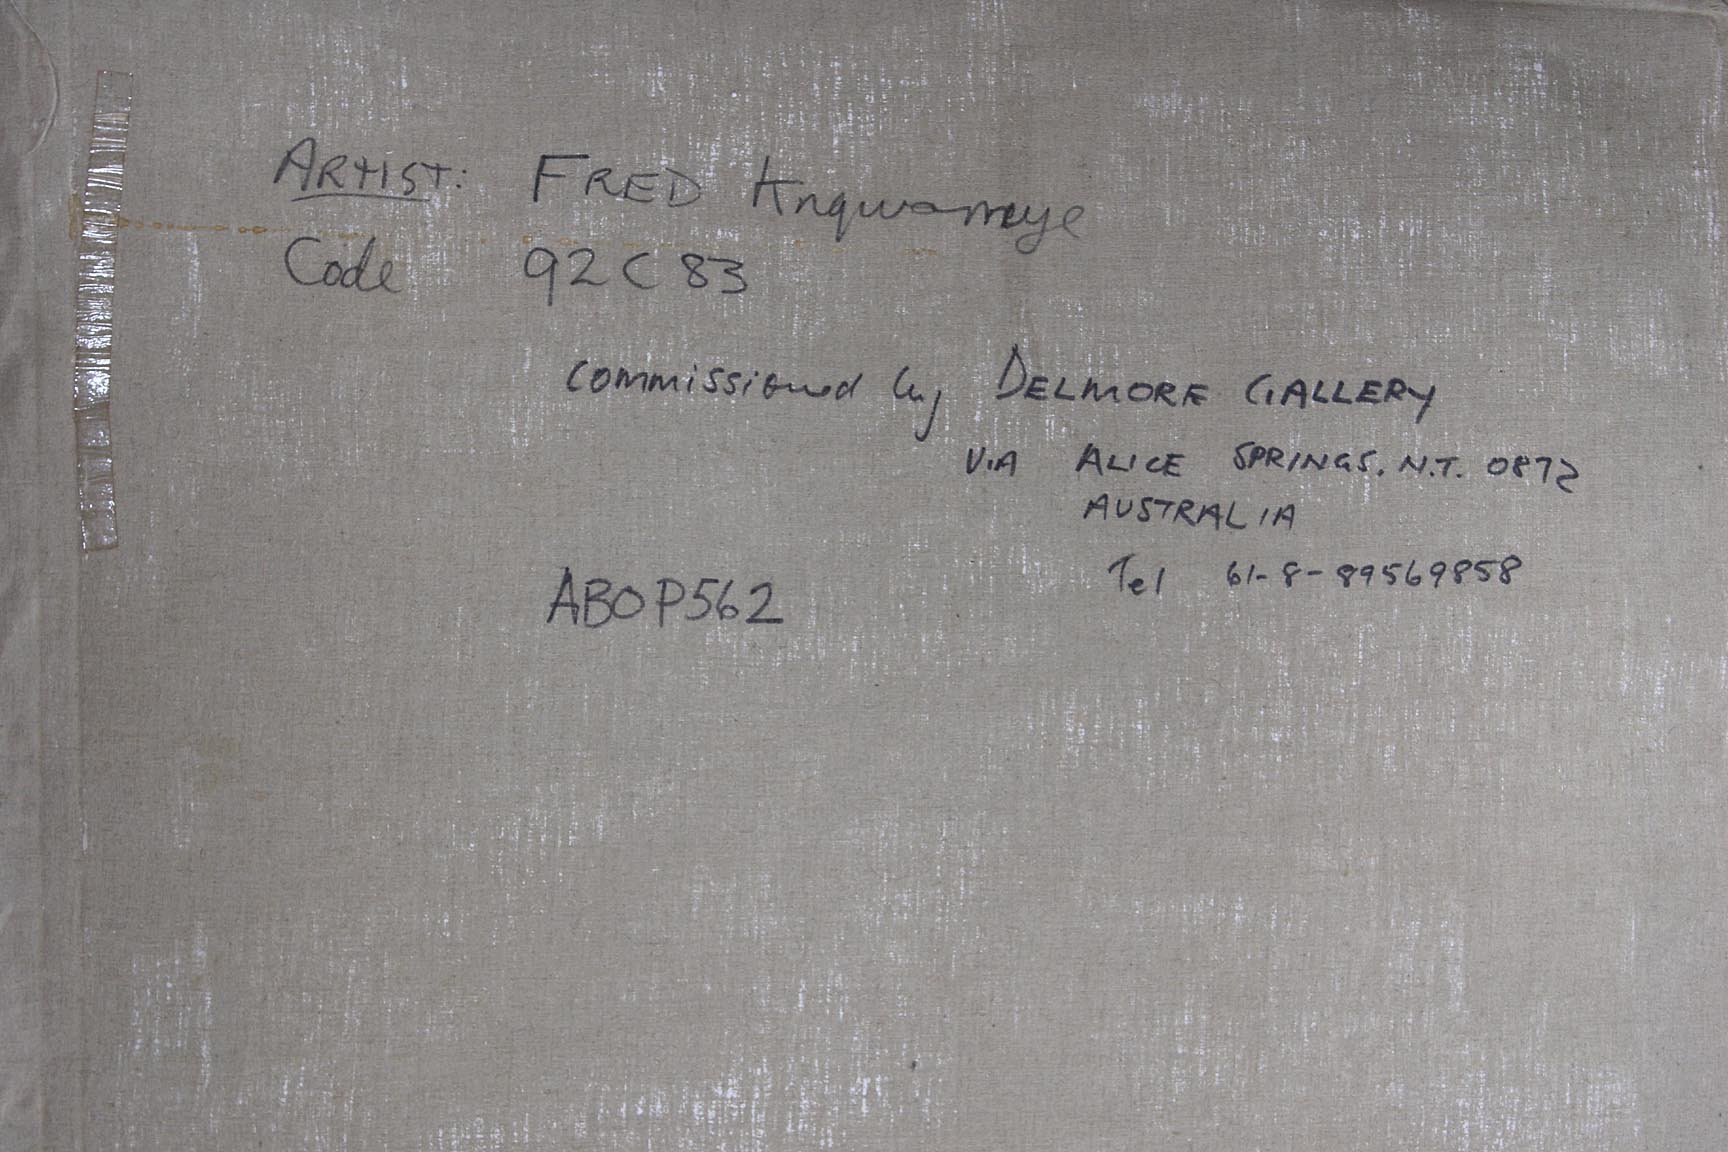 ARTIST: FRED Knqwarreye
Code 92C83
commissioned by DELMORE GALLERY
VIA ALICE SPRINGS. N.T. 0872
AUSTRALIA
Tel 61-8-89569858
ABOP562